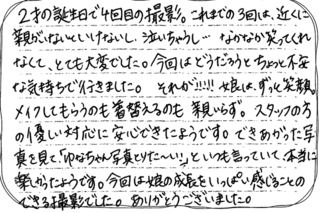 2才の誕生日で4回目の撮影。これまでの3回は、近くに
親がいないといけないし、泣いちゃうし… なかなか笑ってくれ
なくて、とても大変でした。今回はどうだろうとちょっと不安
な気持ちで行きました。 それが!!!!! 娘は、ずっと笑顔。
メイクしてもらうのも着替えるのも 親いらず。スタッフの方
の優しい対応に安心できたようです。できあがった写
真を見て「ゆなちゃん写真とりた〜い」といつも言っていて、本当に
楽しかったようです。今回は娘の成長をいっぱい感じることの
できる撮影でした。ありがとうございました。